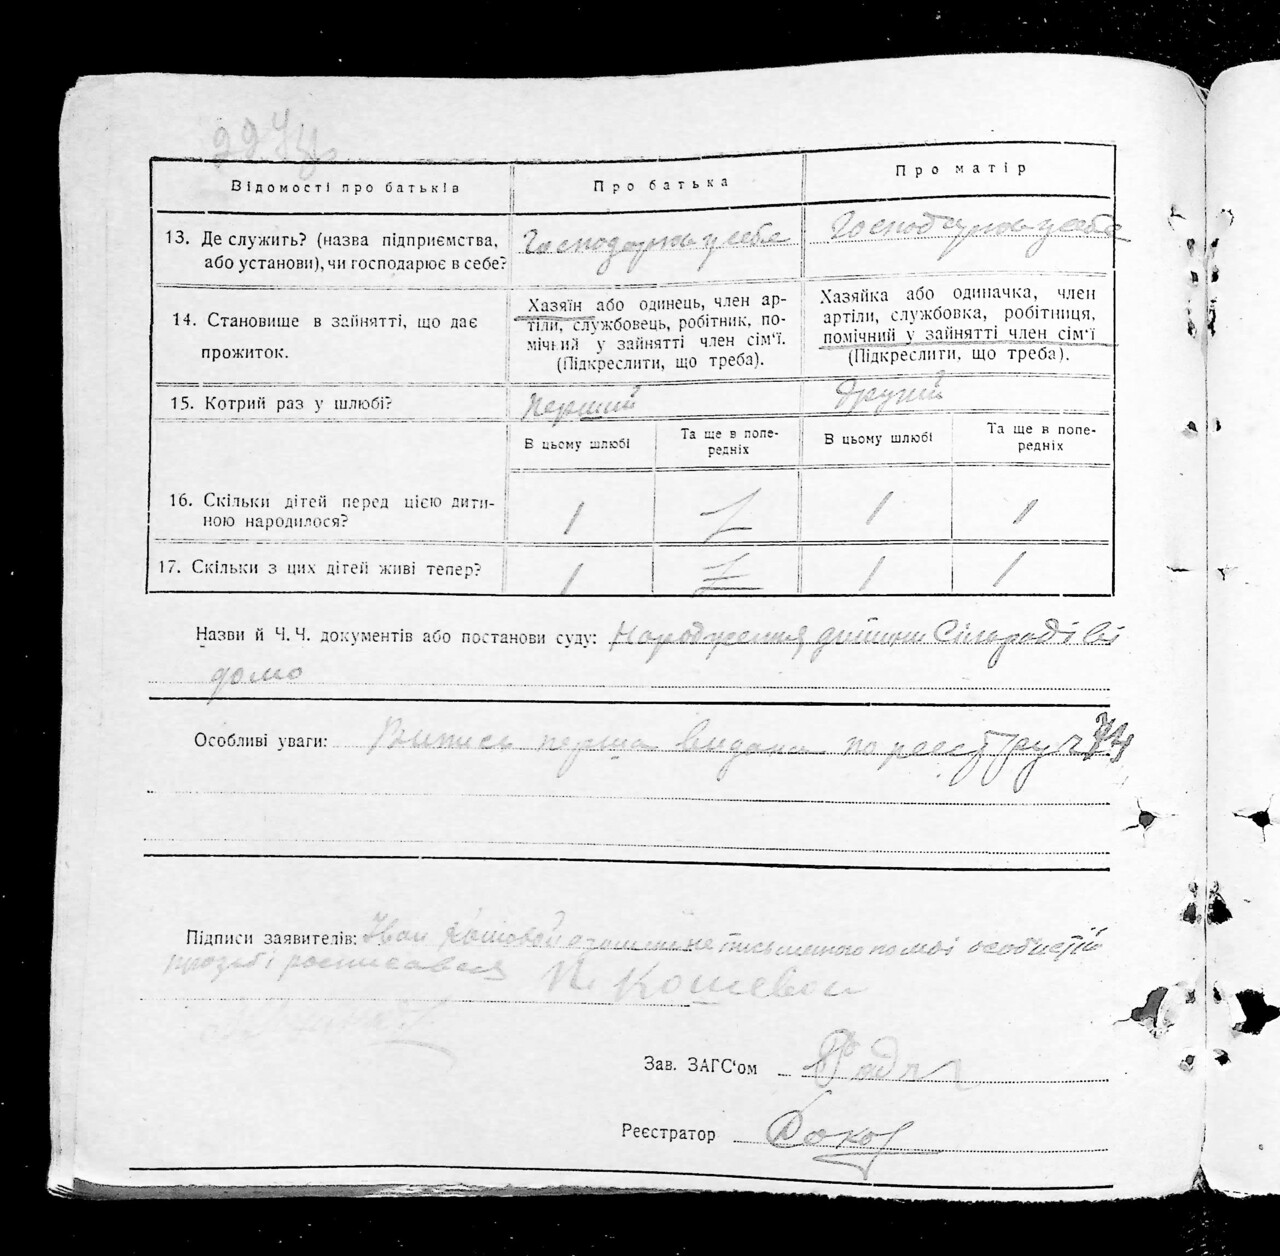 Відомості про батьків
Про батька
Про матір
13. Де служить? (назва підприємства, або установи), чи господарює в себе?
Господарює у себе
Господарює у себе
14. Становище в зайнятті, що дає прожиток.
Хазяїн або одинець, член ар-
тіли, службовець, робітник, по-
мічний у зайнятті член сім'ї.
(Підкреслити, що треба).
Хазяйка або одиначка, член
артіли, службовка, робітниця,
помічний у зайнятті член сім'ї
(Підкреслити, що треба).
15. Котрий раз у шлюбі?
Перший
Другий
В цьому шлюбі
Та ще в попе-
редніх
В цьому шлюбі
Та ще в попе-
редніх
16. Скільки дітей перед цією дити-
ною народилося?
1
1
1
17. Скільки з цих дітей живі тепер?
1
1
1
Назви й Ч. Ч. документів або постанови суду: Народження дитини Сільраді ві
домо
Особливі уваги: Випись перша видана по реєстру
Підписи заявителів: Іван Кошовой особистій
прозьбі росписався Кошевои
Зав. ЗАГС'ом
Реєстратор